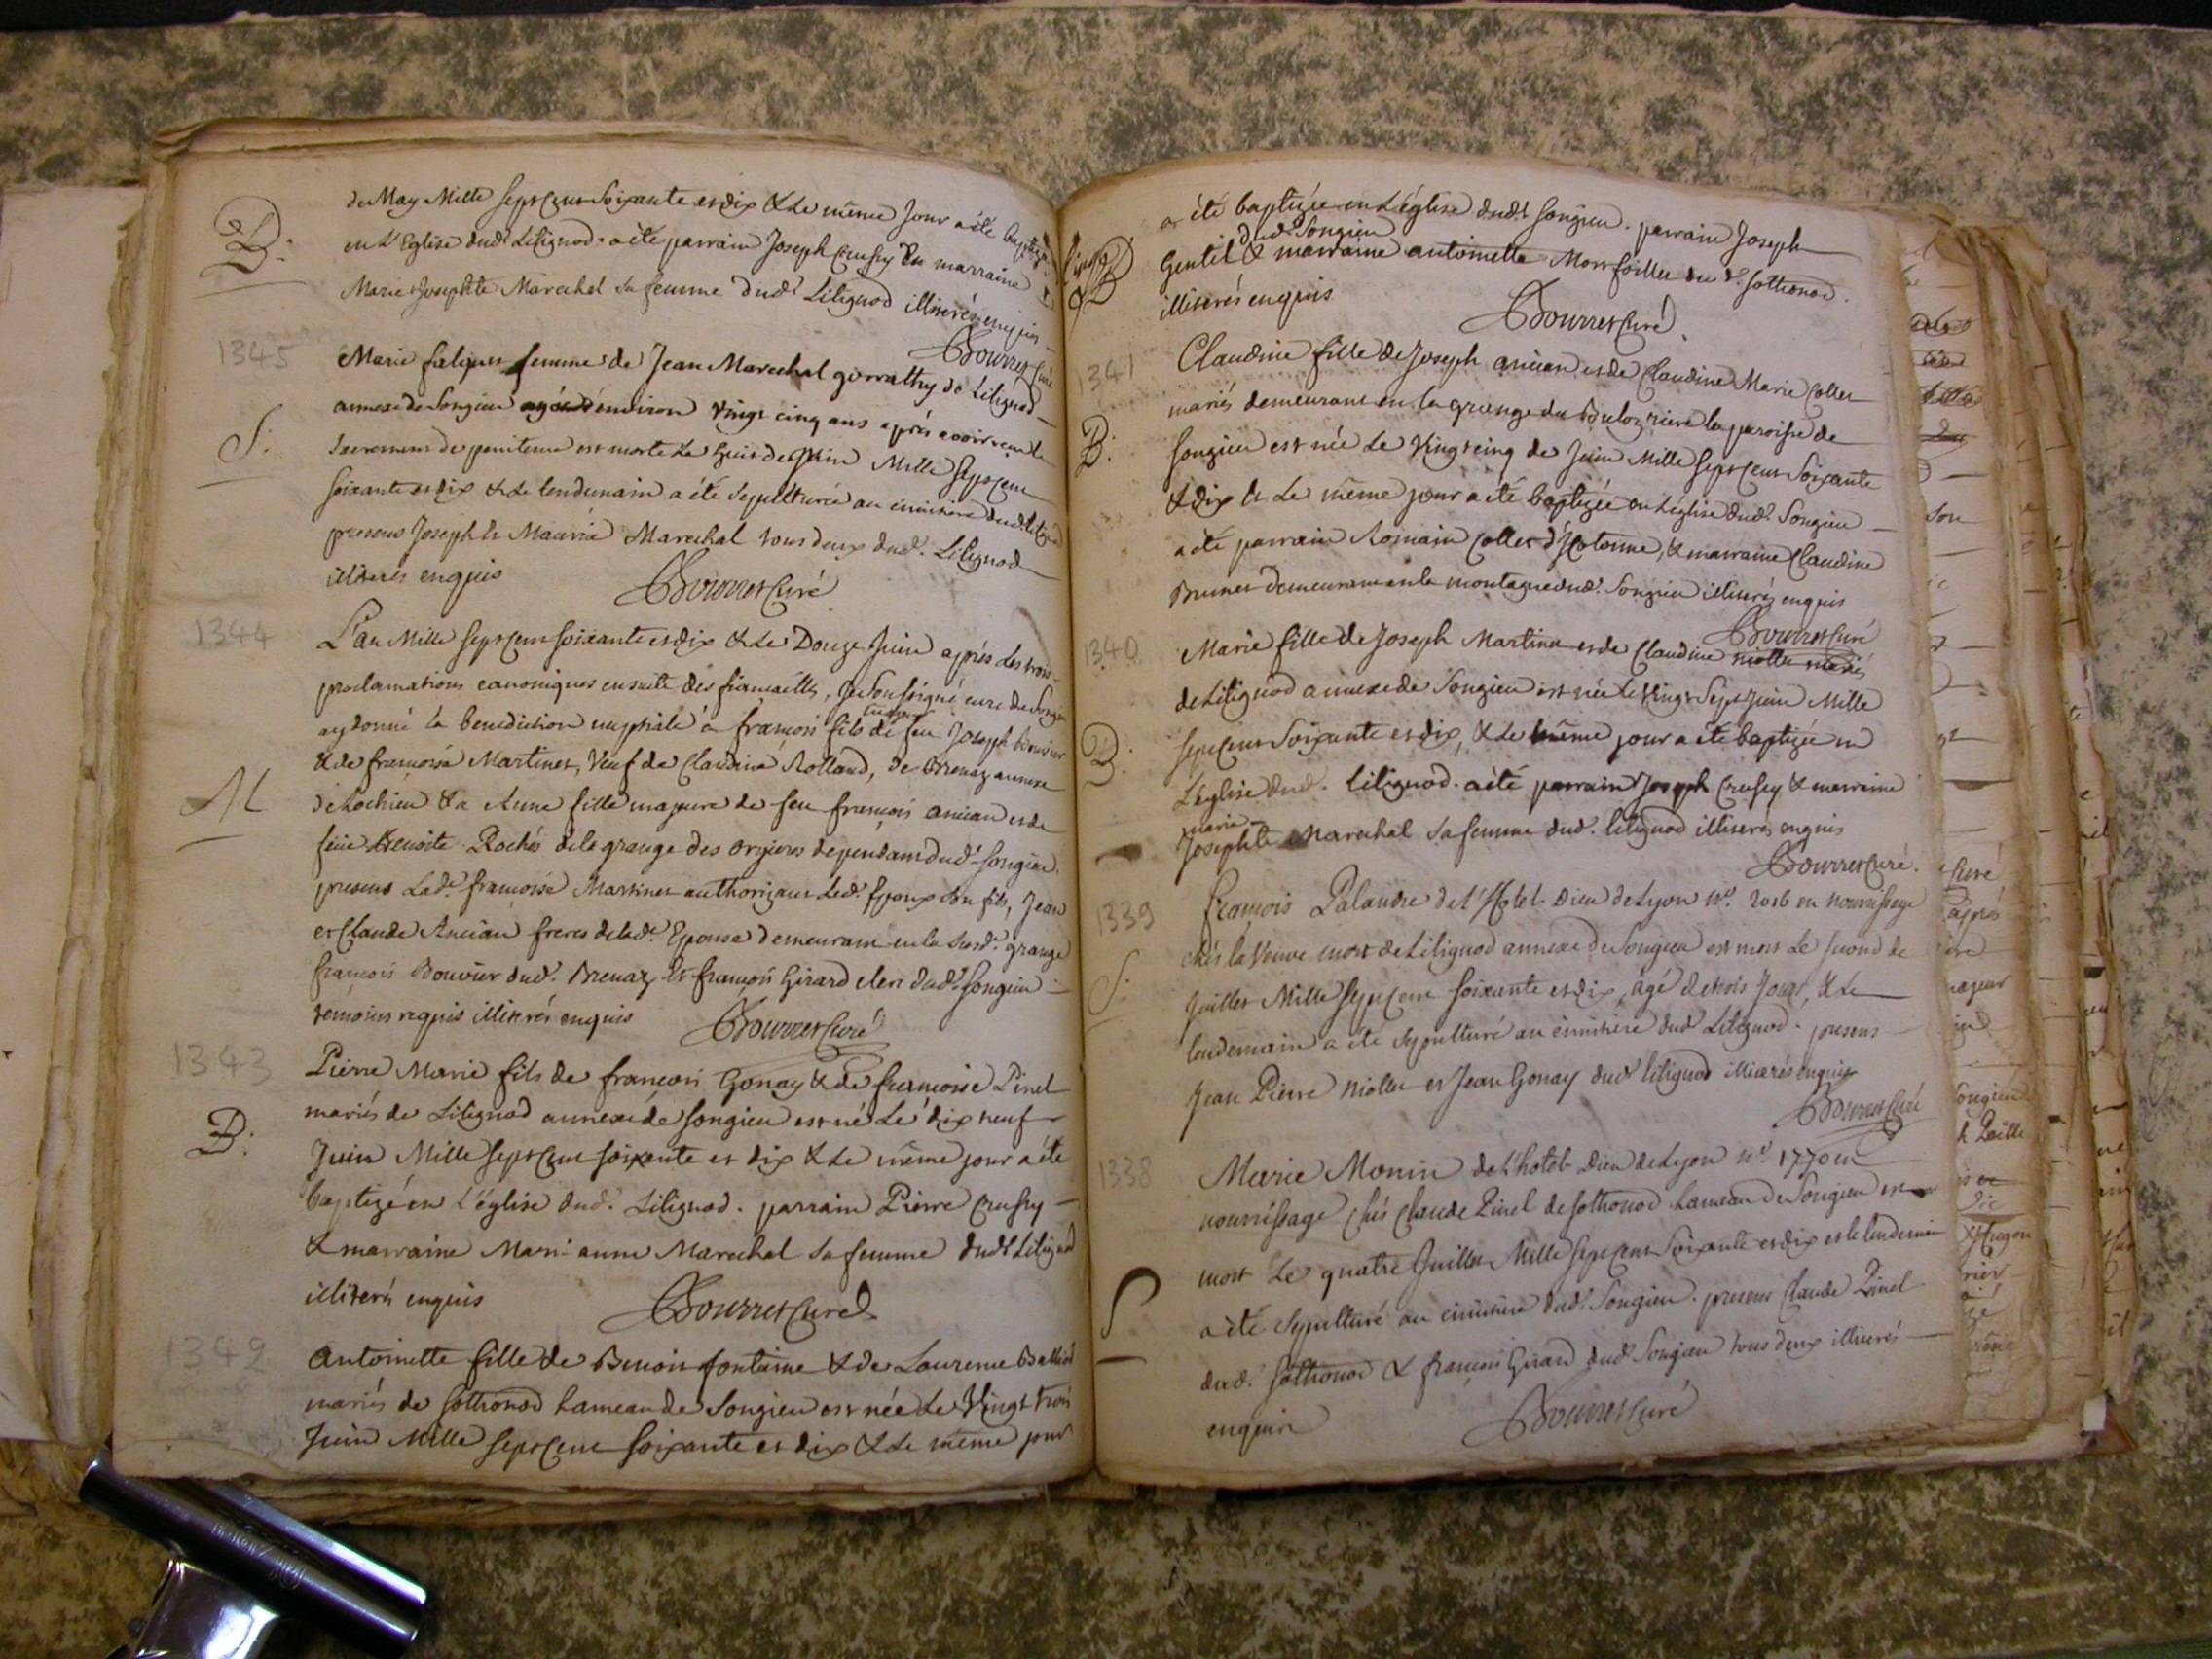 de May Mille sept Cent Soixante et dix & Le même Jour a été baptizé
B.
en L'Eglise dud.t Lilignod. a été parrain Joseph Crussy Et marraine
Marie Josephte Marechal sa femme dud.t Lilignod illiterés enquis
Bourret Curé
1345
Marie femme de Jean Marechal de Lilignod
S.
annexe de Songieu agée d'environ Vingt cinq ans après avoir receu le
Sacrement de penitence est morte Le huit de Juin Mille Sept Cent
soixante et dix & Le lendemain a été sepulturée au cimitiere dud. Lilignod
presens Joseph & Marechal tous deux dud.t Lilignod
illiterés enquis
Bourret Curé
1344
L'an Mille sept Cent soixante et dix & Le Douze Juin après Les trois
proclamations canoniques ensuite des fiancailles, Je Soussigné curé de Songieu
ay donné la benediction nuptiale à francois fils de feu Joseph Bouvier
& de francoise Martinet, Veuf de Claudine Rolland, de Brenaz annexe
M
de Lochieu & a Anne fille majeure de feu francois Ancian et de
feüe Benoite Rochés de la grange des orgieres dependant dud.t Songieu.
presens Lad.e francoise Martinet authorizant Led.t Epoux Son fils, Jean
et Claude Ancian freres de lad.e Epouse demeurant en la Susd.e grange
francois Bouvier dud.t Brenaz, Et francois Girard clerc dud.t Songieu
témoins requis illiterés enquis
Bourret Curé
1343
Pierre Marie fils de francois Gonay & de francoise Pinel
mariés de Lilignod annexe de Songieu est né Le dix neuf
B.
Juin Mille Sept Cent soixante et dix & Le même jour a été
baptizé en L'église dud. Lilignod. parrain Pierre Crussy
& marraine Marianne Marechal Sa femme dud.t Lilignod
illiterés enquis
Bourret Curé
1342
Antoinette fille de Benoit fontaine & de Laurence
mariés de Sothonod hameau de Songieu est née Le Vingt trois
Juin Mille Sept Cent soixante et dix & Le même jour
a été baptizée en L'église dud.t Songieu. parrain Joseph
dud.t Songieu
B
Gentil & marraine antoinette du d.t Sothonod.
illiterés enquis
Bourret Curé
1341
Claudine fille de Joseph ancian et de Claudine Marie Collet
mariés demeurant en la grange du riere la paroisse de
B.
Songieu est née Le Vingt cinq de Juin Mille sept Cent Soixante
& dix Et Le même jour a été baptizée en L'église dud.t Songieu
a été parrain Romain Collet d'Hotonne, & marraine Claudine
Brunet demeurant en la montagne dud.t Songieu illiterés enquis
Bourret Curé
1340
Marie fille de Joseph Martinet et de Claudine Niollet mariés
de Lilignod annexe de Songieu est née Le Vingt Sept Juin Mille
B.
Sept Cent Soixante et dix, & Le même jour a été baptizée en
L'église dud.t Lilignod. a été parrain Joseph Crussy & marraine
marie
Josephte Marechal Sa femme dud.t Lilignod illiterés enquis
Bourret Curé.
1339
françois Palandre de l'Hotel Dieu de Lyon n.o 2016 en nourrissage
chés la Veuve de Lilignod annexe de Songieu est mort Le second de
S.
Juillet Mille Sept Cent soixante et dix, âgé de trois Jours, & Le
lendemain a été sepulturé au cimitiere dud.t Lilignod. presens
Jean Pierre Niollet et Jean Gonay dud.t Lilignod illiterés enquis
Bourret Curé
1338
Marie Monin de L'hotel Dieu de Lyon n.o 1770 en
nourrissage chés Claude Pinel de Sothonod hameau de Songieu est
mort Le quatre Juillet Mille Sept Cent Soixante et dix et le lendemain
S
a été sepulturé au cimitiere dud.t Songieu. presens Claude Pinel
dud.t Sothonod & francois Girard dud.t Songieu tous deux illiterés
enquis
Bourret Curé